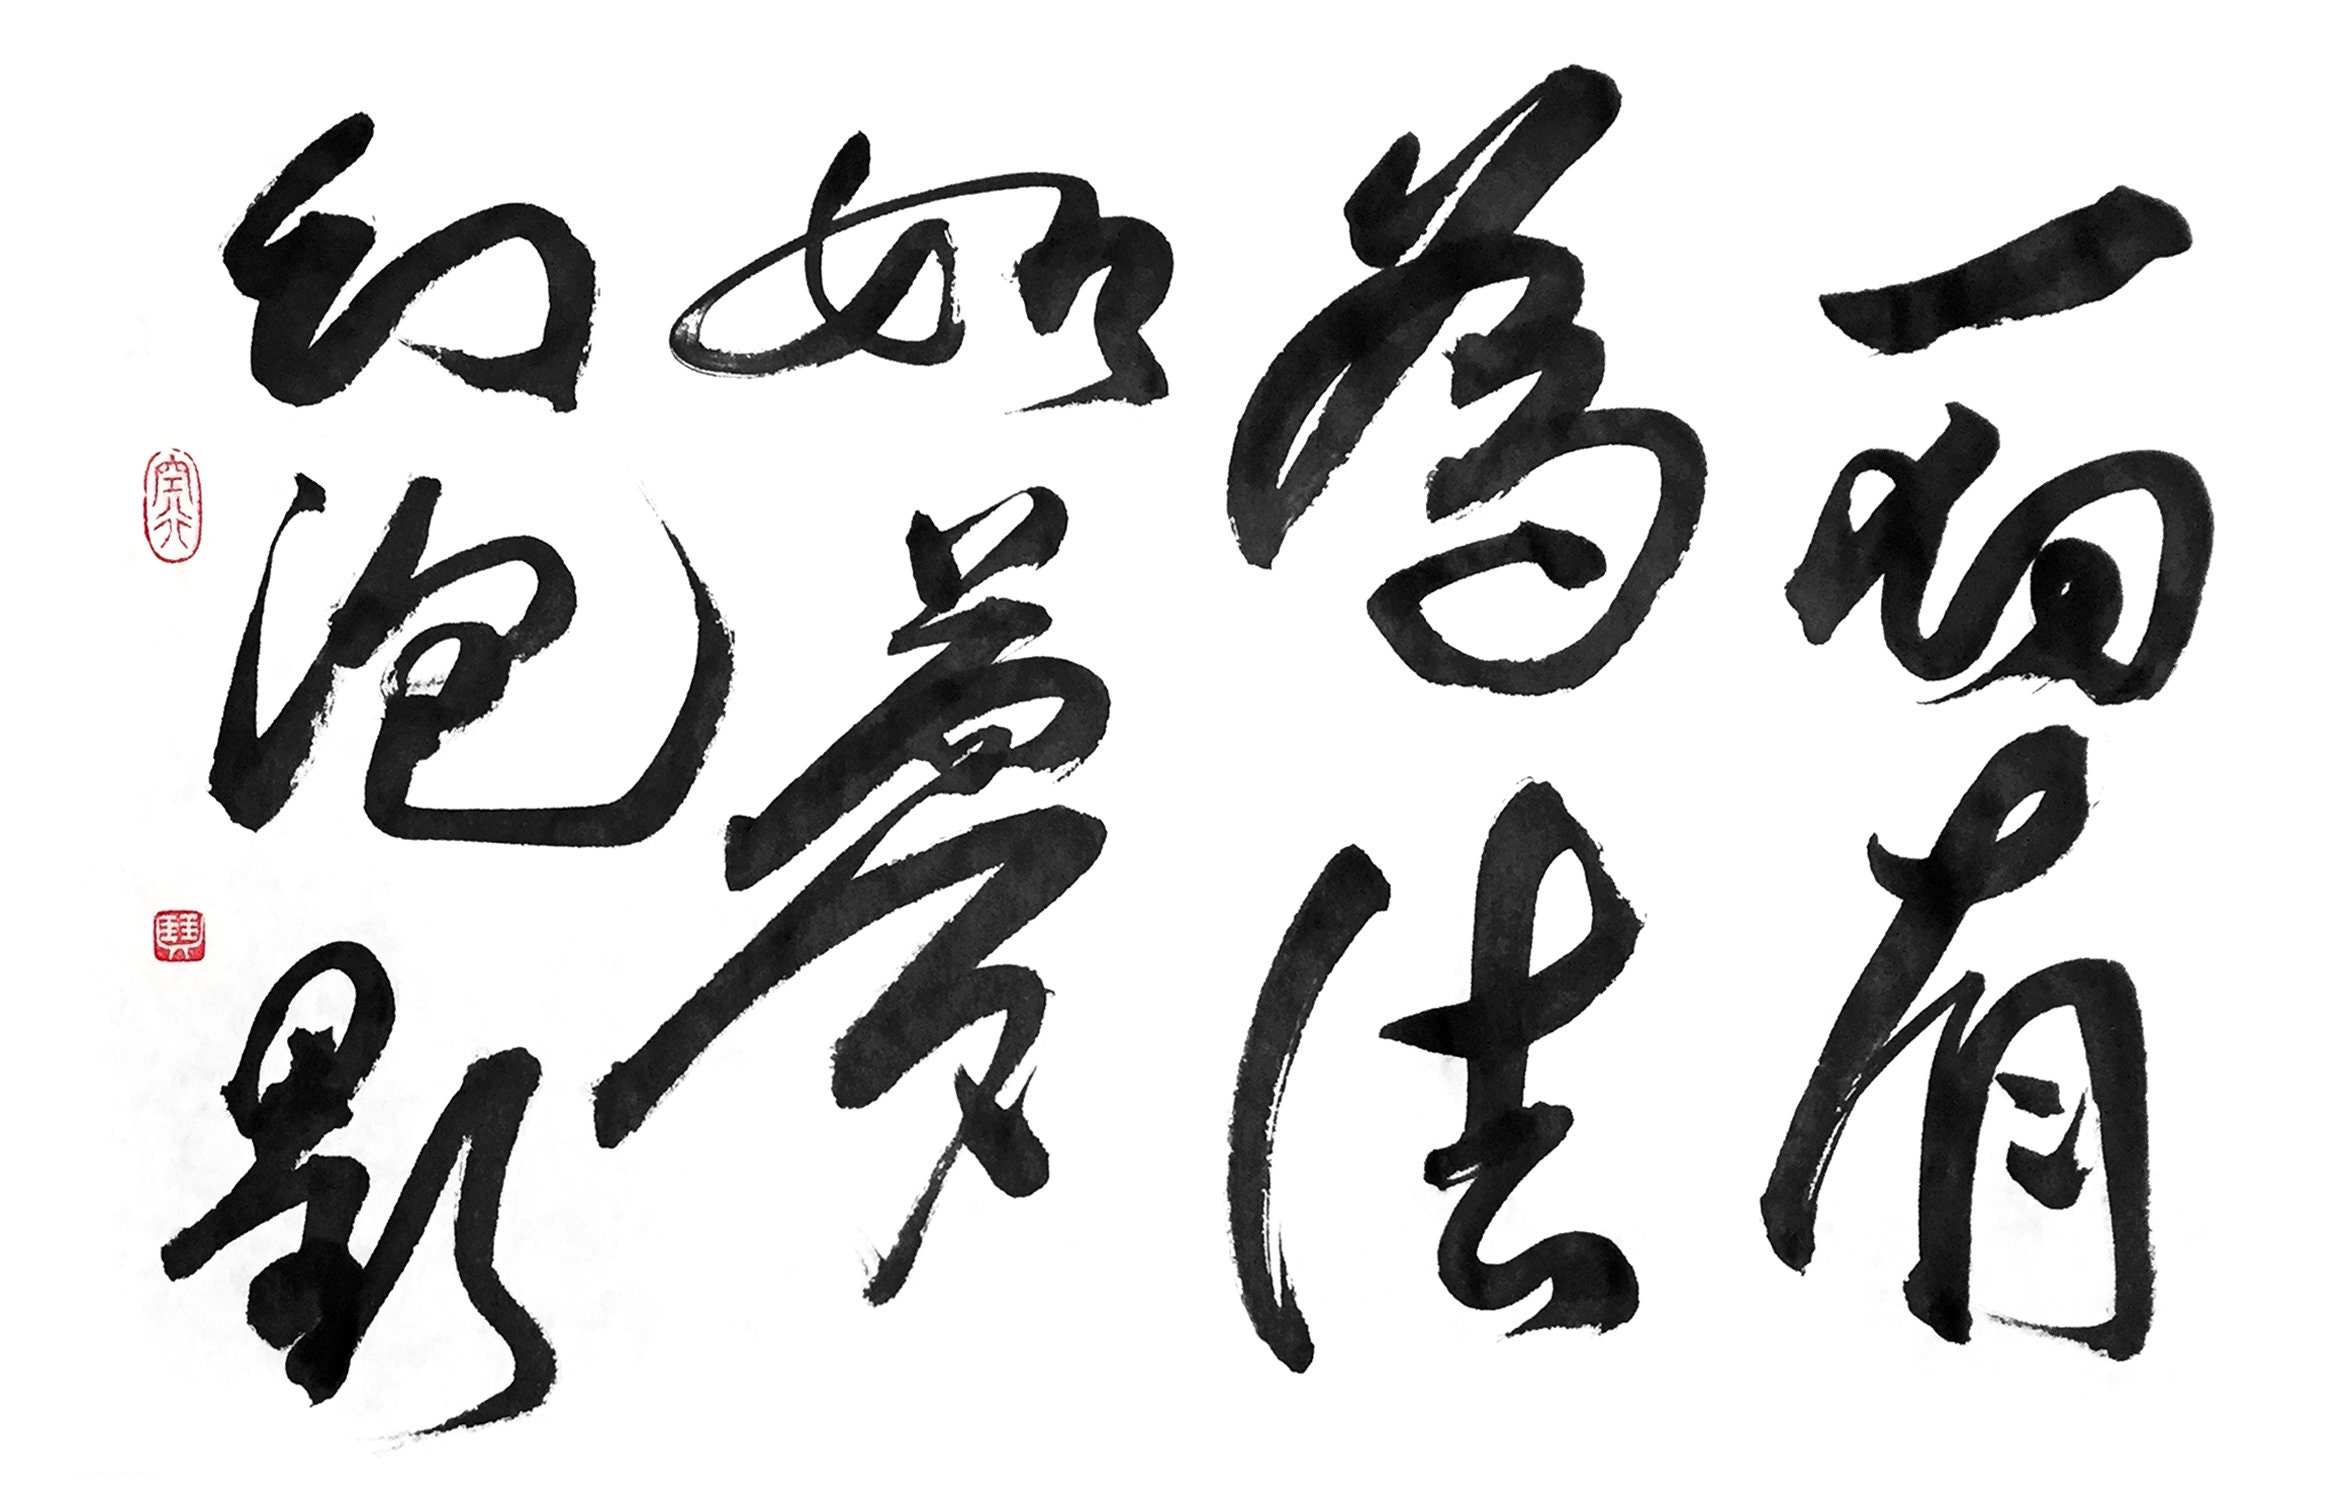 一切有
為法
如夢
幻泡影
空行